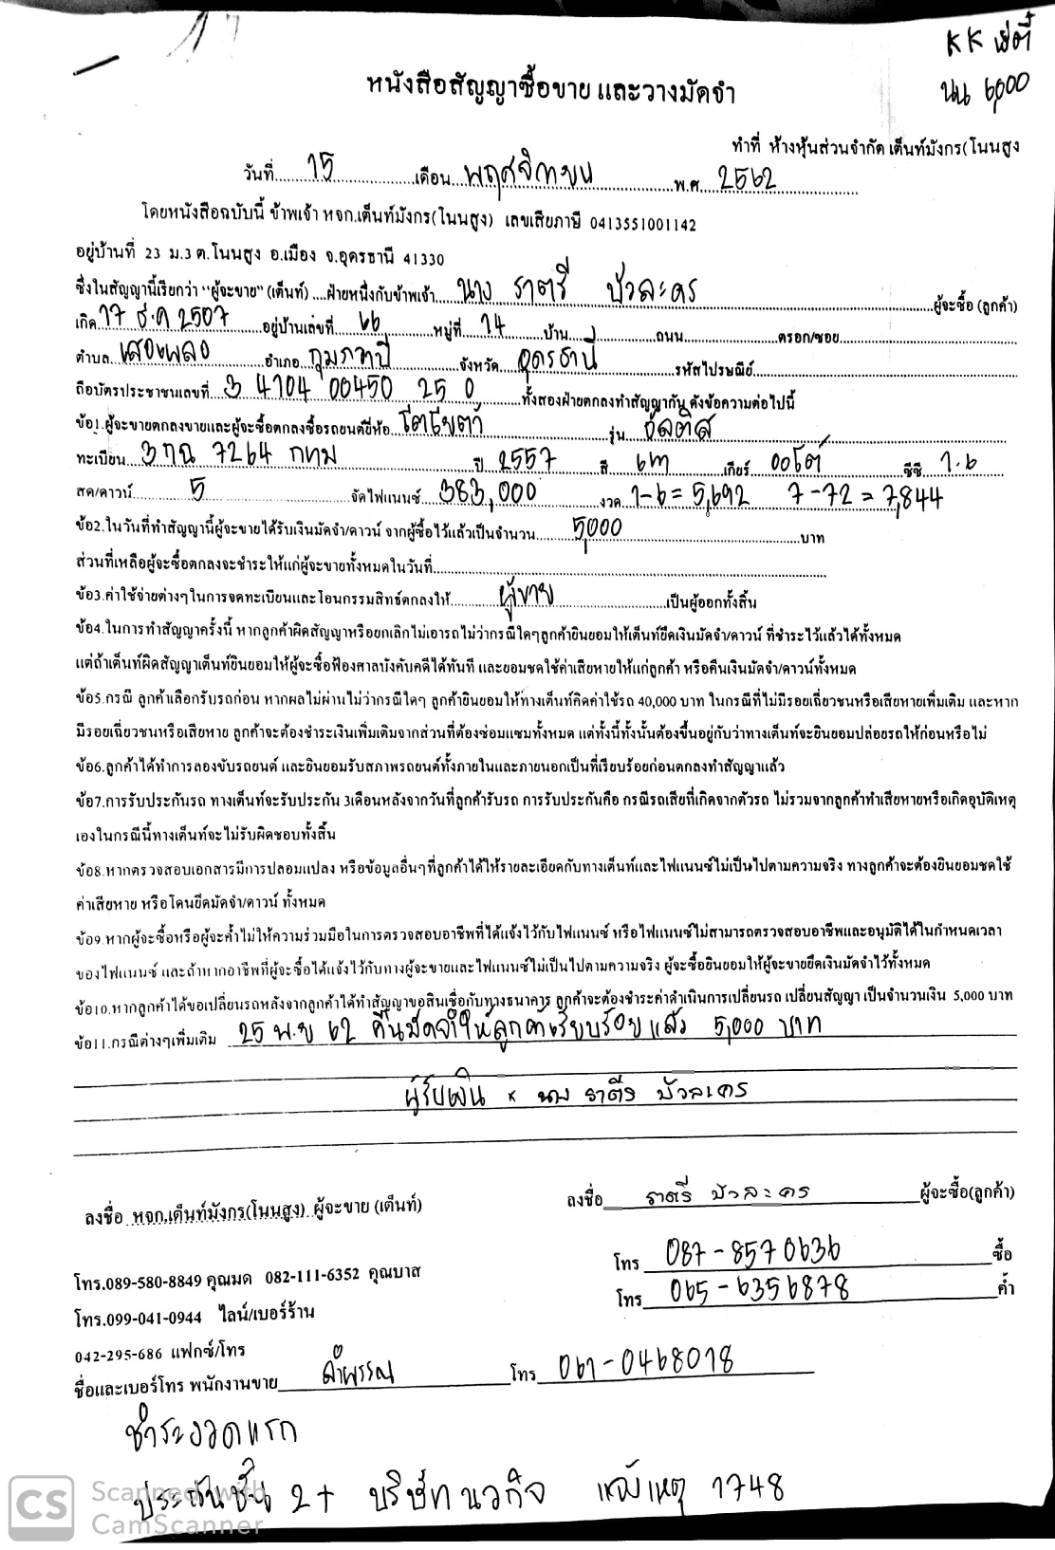 KK เซ่ตี้
นน 6,000
หนังสือสัญญาซื้อขาย และวางมัดจำ
ทำที่ ห้างหุ้นส่วนจำกัด เต็นท์มังกร(โนนสูง
วันที่ 15 เดือน พฤศจิกายน พ.ศ. 2562
โดยหนังสือฉบับนี้ ข้าพเจ้า หจก.เต็นท์มังกร(โนนสูง) เลขเสียภาษี 0413551001142
อยู่บ้านที่ 23 ม.3 ต.โนนสูง อ.เมือง จ.อุดรธานี 41330
ซึ่งในสัญญานี้เรียกว่า "ผู้จะขาย" (เต็นท์) ....ฝ่ายหนึ่งกับข้าพเจ้า นาง ราตรี บัวละคร ผู้จะซื้อ (ลูกค้า)
เกิด 17 ธ.ค 2507 อยู่บ้านเลขที่ 66 หมู่ที่ 14 บ้าน ถนน ตรอก/ซอย
ตำบล เสอเพลอ อำเภอ กุมภวาปี จังหวัด อุดรธานี รหัสไปรษณีย์
ถือบัตรประชาชนเลขที่ 3 4104 00450 25 0 ทั้งสองฝ่ายตกลงทำสัญญากัน ดังข้อความต่อไปนี้
ข้อ1.ผู้จะขายตกลงขายและผู้จะซื้อตกลงซื้อรถยนต์ยี่ห้อ โตโยต้า รุ่น อัลติส
ทะเบียน 3 กฉ 7264 กทม ปี 2557 สี เทา เกียร์ ออโต้ ซีซี 1.6
สด/ดาวน์ 5 จัดไฟแนนซ์ 383,000 งวด 1-6 = 5,692 7-72 = 7,844
ข้อ2.ในวันที่ทำสัญญานี้ผู้จะขายได้รับเงินมัดจำ/ดาวน์ จากผู้ซื้อไว้แล้วเป็นจำนวน 5,000 บาท
ส่วนที่เหลือผู้จะซื้อตกลงจะชำระให้แก่ผู้จะขายทั้งหมดในวันที่
ข้อ3.ค่าใช้จ่ายต่างๆในการจดทะเบียนและโอนกรรมสิทธ์ตกลงให้ ผู้ขาย เป็นผู้ออกทั้งสิ้น
ข้อ4.ในการทำสัญญาครั้งนี้ หากลูกค้าผิดสัญญาหรือยกเลิกไม่เอารถไม่ว่ากรณีใดๆลูกค้ายินยอมให้เต็นท์ยึดเงินมัดจำ/ดาวน์ ที่ชำระไว้แล้วได้ทั้งหมด
แต่ถ้าเต็นท์ผิดสัญญาเต็นท์ยินยอมให้ผู้จะซื้อฟ้องศาลบังคับคดีได้ทันที และยอมชดใช้ค่าเสียหายให้แก่ลูกค้า หรือคืนเงินมัดจำ/ดาวน์ทั้งหมด
ข้อ5.กรณี ลูกค้าเลือกรับรถก่อน หากผลไม่ผ่านไม่ว่ากรณีใดๆ ลูกค้ายินยอมให้ทางเต็นท์คิดค่าใช้รถ 40,000 บาท ในกรณีที่ไม่มีรอยเฉี่ยวชนหรือเสียหายเพิ่มเติม และหาก
มีรอยเฉี่ยวชนหรือเสียหาย ลูกค้าจะต้องชำระเงินเพิ่มเติมจากส่วนที่ต้องซ่อมแซมทั้งหมด แต่ทั้งนี้ทั้งนั้นต้องขึ้นอยู่กับว่าทางเต็นท์จะยินยอมปล่อยรถให้ก่อนหรือไม่
ข้อ6.ลูกค้าได้ทำการลองขับรถยนต์ และยินยอมรับสภาพรถยนต์ทั้งภายในและภายนอกเป็นที่เรียบร้อยก่อนตกลงทำสัญญาแล้ว
ข้อ7.การรับประกันรถ ทางเต็นท์จะรับประกัน 3เดือนหลังจากวันที่ลูกค้ารับรถ การรับประกันคือ กรณีรถเสียที่เกิดจากตัวรถ ไม่รวมจากลูกค้าทำเสียหายหรือเกิดอุบัติเหตุ
เองในกรณีนี้ทางเต็นท์จะไม่รับผิดชอบทั้งสิ้น
ข้อ8.หากตรวจสอบเอกสารมีการปลอมแปลง หรือข้อมูลอื่นๆที่ลูกค้าได้ให้รายละเอียดกับทางเต็นท์และไฟแนนซ์ไม่เป็นไปตามความจริง ทางลูกค้าจะต้องยินยอมชดใช้
ค่าเสียหาย หรือโดนยึดมัดจำ/ดาวน์ ทั้งหมด
ข้อ9.หากผู้จะซื้อหรือผู้จะค้ำไม่ให้ความร่วมมือในการตรวจสอบอาชีพที่ได้แจ้งไว้กับไฟแนนซ์ หรือไฟแนนซ์ไม่สามารถตรวจสอบอาชีพและอนุมัติได้ในกำหนดเวลา
ของไฟแนนซ์ และถ้าหากอาชีพที่ผู้จะซื้อได้แจ้งไว้กับทางผู้จะขายและไฟแนนซ์ไม่เป็นไปตามความจริง ผู้จะซื้อยินยอมให้ผู้จะขายยึดเงินมัดจำไว้ทั้งหมด
ข้อ10.หากลูกค้าได้ขอเปลี่ยนรถหลังจากลูกค้าได้ทำสัญญาขอสินเชื่อกับทางธนาคาร ลูกค้าจะต้องชำระค่าดำเนินการเปลี่ยนรถ เปลี่ยนสัญญา เป็นจำนวนเงิน 5,000 บาท
ข้อ11.กรณีต่างๆเพิ่มเติม 25 พ.ย 62 คืนมัดจำให้ลูกค้าเรียบร้อยแล้ว 5,000 บาท
ผู้รับเงิน x นาง ราตรี บัวละคร
ลงชื่อ หจก.เต็นท์มังกร(โนนสูง) ผู้จะขาย (เต็นท์) ลงชื่อ ราตรี บัวละคร ผู้จะซื้อ(ลูกค้า)
โทร 087-8570636 ซื้อ
โทร.089-580-8849 คุณมด 082-111-6352 คุณบาส
โทร 065-6356878 ค้ำ
โทร.099-041-0944 ไลน์/เบอร์ร้าน
042-295-686 แฟกซ์/โทร
ชื่อและเบอร์โทร พนักงานขาย ลำพรรณ โทร 061-0468018
ชำระงวดแรก
ประกันชั้น 2+ บริษัท นวกิจ แจ้งเหตุ 1748
CS Scanned with
CamScanner